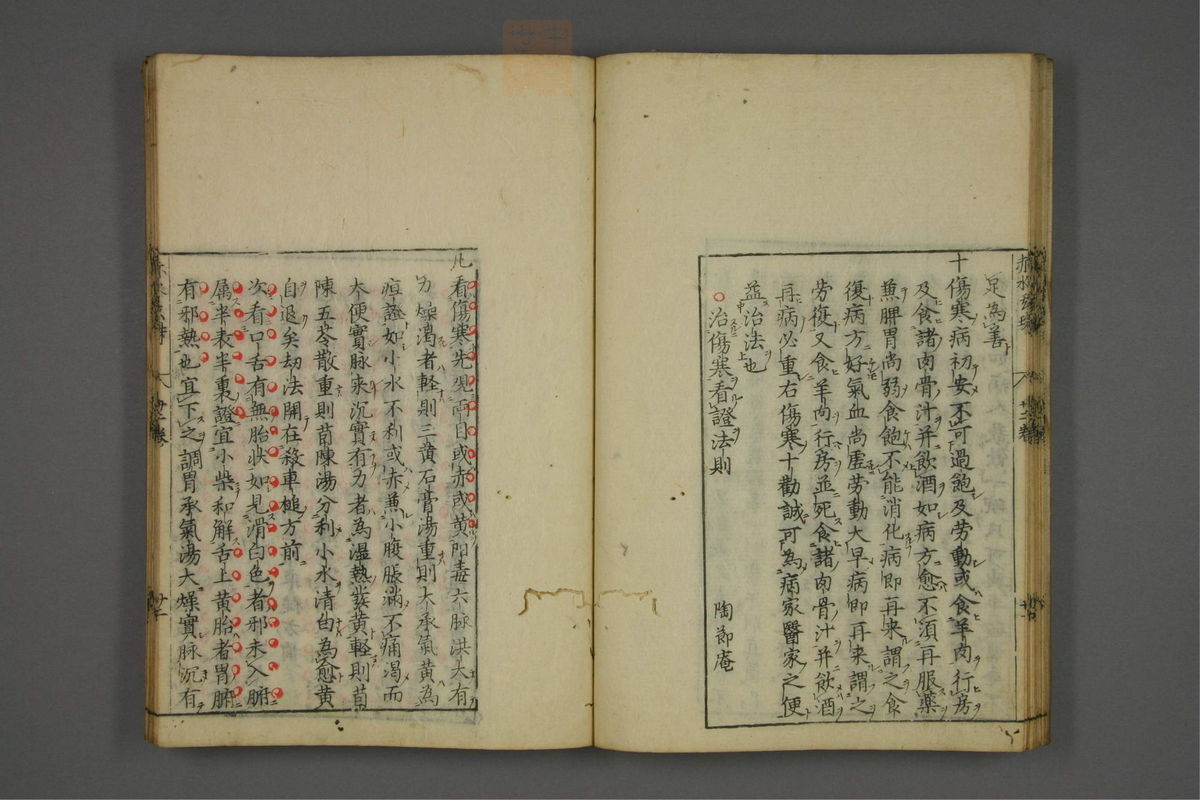 足為善
十傷寒病初安不可過飽及勞動或食羊肉行房
及食諸肉骨汁并飲酒如病方愈不須再服藥
無脾胃尚弱食飽不能消化病即再来謂之食
復病方好氣血尚虛勞動大早病即再来謂之
勞復又食羊肉行房並死食諸肉骨汁并飲酒
再病必重右傷寒十勸誡可為病家醫家之便
益治法也
治傷寒看證法則
陶節庵
凡看傷寒先觀両目或赤或黄陽毒六脉洪大有
力燥渇者軽則三黄石膏湯重則大承氣黄為
疸證如小水不利或赤兼小腹脹滿不痛渇而
大便實脉来沉實有力者為濕熱發黄軽則茵
陳五苓散重則茵陳湯分利小水清白為愈黄
自退矣劫法開在殺車槌方前
次看口舌有無胎状如見滑白色者邪未入腑
属半表半裏證宜小柴和解舌上黄胎者胃腑
有邪熱也宜下之調胃承氣湯大燥實脉沉有